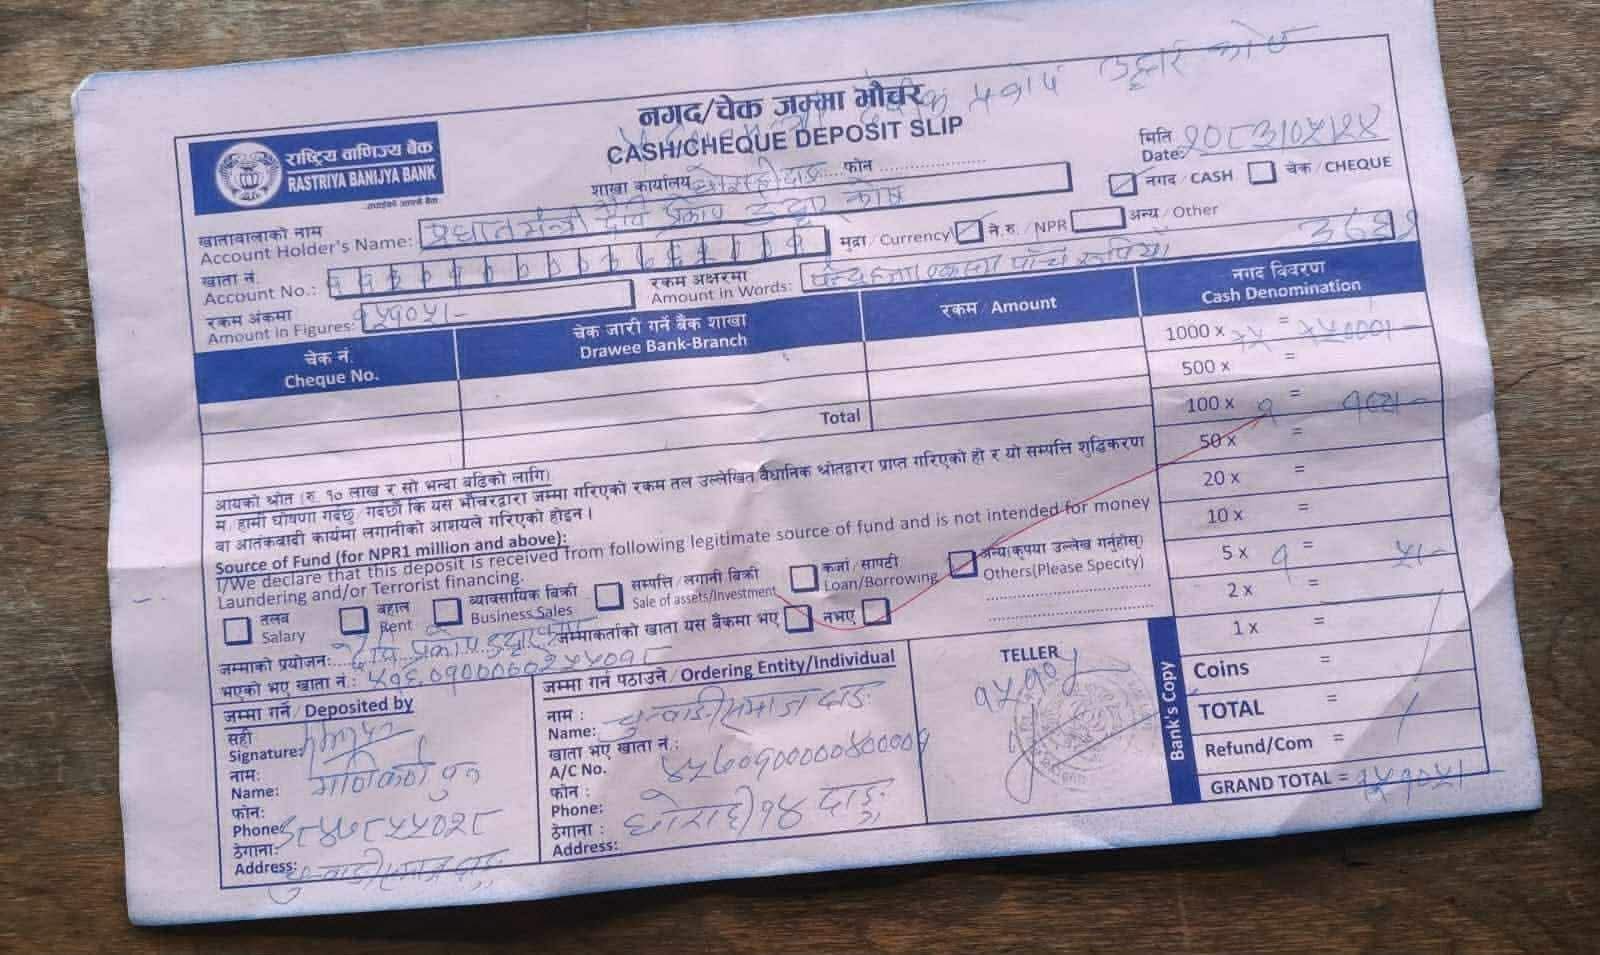 नगद/चेक जम्मा भौचर
CASH/CHEQUE DEPOSIT SLIP
राष्ट्रिय वाणिज्य बैंक
RASTRIYA BANIJYA BANK
...तपाईंको आफ्नै बैंक
मिति
Date:
शाखा कार्यालय घोराही दाङ फोन
नगद / CASH चेक / CHEQUE
खातावालाको नाम
Account Holder's Name: प्रधानमन्त्री दैवि प्रकोप उद्धार कोष
खाता नं.
Account No.:
मुद्रा / Currency ने.रु. / NPR अन्य / Other
रकम अंकमा
Amount in Figures: १५१०५।-
रकम अक्षरमा
Amount in Words: पन्ध्र हजार एकसय पाँच रूपियाँ
चेक नं.
Cheque No.
चेक जारी गर्ने बैंक शाखा
Drawee Bank-Branch
रकम / Amount
नगद विवरण
Cash Denomination
Total
1000 x १५ = १५०००।-
500 x =
100 x १ = १००।-
50 x =
20 x =
10 x =
5 x १ = ५।-
2 x =
1 x =
Coins =
TOTAL =
Refund/Com =
GRAND TOTAL = १५१०५।-
आयको श्रोत (रु. १० लाख र सो भन्दा बढिको लागि)
म/हामी घोषणा गर्दछु/गर्दछौं कि यस भौचरद्वारा जम्मा गरिएको रकम तल उल्लेखित वैधानिक श्रोतद्वारा प्राप्त गरिएको हो र यो सम्पत्ति शुद्धिकरण
वा आतंकवादी कार्यमा लगानीको आशयले गरिएको होइन।
Source of Fund (for NPR1 million and above):
I/We declare that this deposit is received from following legitimate source of fund and is not intended for money
Laundering and/or Terrorist financing.
तलब
Salary
बहाल
Rent
व्यावसायिक बिक्री
Business Sales
सम्पत्ति/लगानी बिक्री
Sale of assets/Investment
कर्जा/सापटी
Loan/Borrowing
अन्य(कृपया उल्लेख गर्नुहोस्)
Others(Please Specity)
जम्माको प्रयोजन: दैवि प्रकोप उद्धार कोष
जम्माकर्ताको खाता यस बैंकमा भए नभए
भएको भए खाता नं.:
जम्मा गर्ने/Deposited by
सही
Signature:
नाम:
Name:
फोन:
Phone:
ठेगाना:
Address:
जम्मा गर्न पठाउने/Ordering Entity/Individual
नाम :
Name:
खाता भए खाता नं.:
A/C No.
फोन :
Phone:
ठेगाना :
Address: घोराही १४ दाङ
TELLER
Bank's Copy